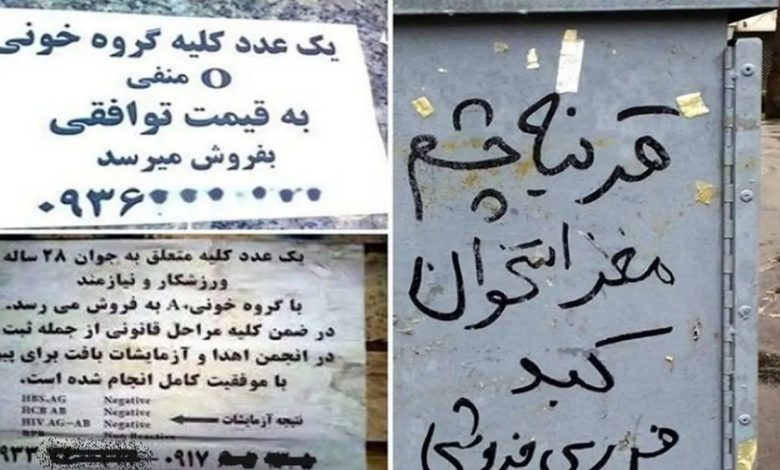 یک عدد کلیه گروه خونی
O منفی
به قیمت توافقی
بفروش میرسد
۰۹۳۶
یک عدد کلیه متعلق به جوان ۲۸ ساله
ورزشکار و نیازمند
با گروه خونی A+ به فروش می رسد.
در ضمن کلیه مراحل قانونی از جمله ثبت
در انجمن اهدا و آزمایشات بافت برای پیو
با موفقیت کامل انجام شده است.
HBS.AG Negative
HCB AB Negative
HIV AG-AB Negative
نتیجه آزمایشات
۰۹۱۷
۰۹۳۳
قرنیه چشم
مغز استخوان
کبد
فروشی